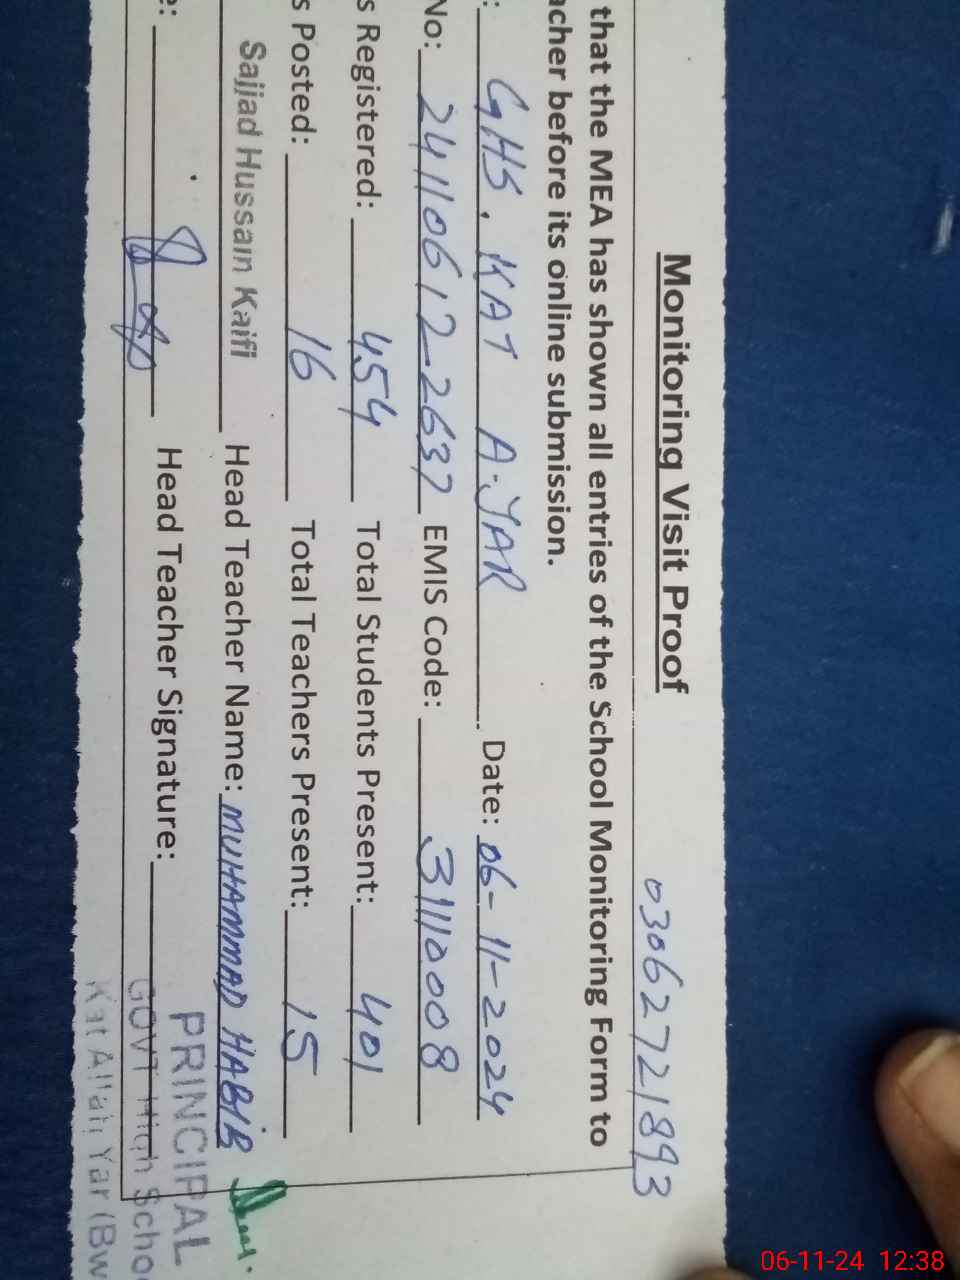 Monitoring Visit Proof
03062721893
that the MEA has shown all entries of the School Monitoring Form to
acher before its online submission.
: GHS. KAT A.YAR Date: 06-11-2024
No: 241106 12-2637 EMIS Code: 31110008
s Registered: 454 Total Students Present: 401
s Posted: 16 Total Teachers Present: 15
Sajjad Hussain Kaifi Head Teacher Name: MUHAMMAD HABIB
e: Head Teacher Signature:
PRINCIPAL
GOVT High Schoo
Kat Allah Yar (Bw
06-11-24 12:38